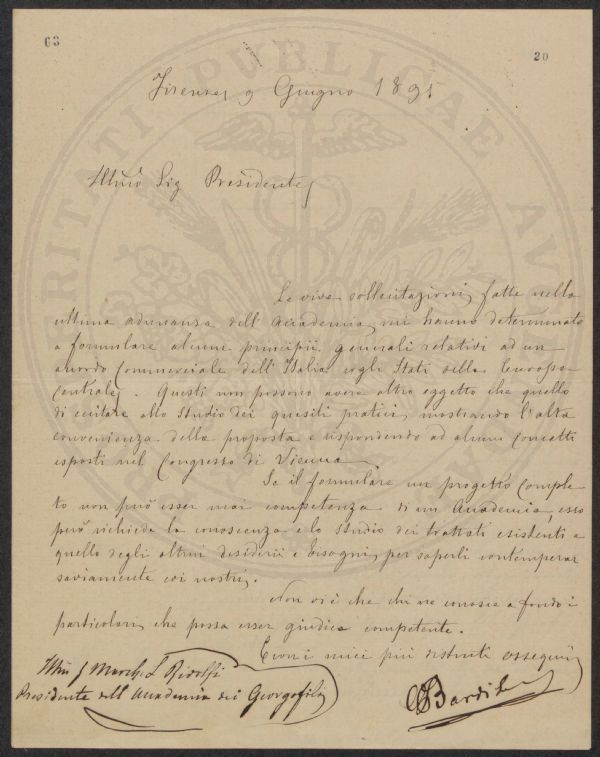 63
20
Firenze 9 Giugno 1891
Illmo Sig Presidente,
Le vive sollecitazioni, fatte nella
ultima adunanza dell'Accademia, mi hanno determinato
a formulare alcuni principii generali relativi ad un
accordo Commerciale dell'Italia cogli Stati della Europa
Centrale. Questi non possono avere altro oggetto che quello
di eccitare allo studio dei quesiti pratici, mostrando l'alta
convenienza della proposta e rispondendo ad alcuni concetti
esposti nel Congresso di Vienna
Se il formulare un progetto comple
to non può esser mai competenza di un Accademia, esso
però richiede la conoscenza e lo studio dei trattati esistenti e
quello degli altrui desiderii e bisogni, per saperli contemperar
saviamente coi nostri.
Non vi è che chi ne conosce a fondo i
particolari, che possa esser giudice competente.
Con i miei più distinti ossequi
Illmo S March. L Ridolfi
Presidente dell'Accademia dei Georgofili
PUBLICAE